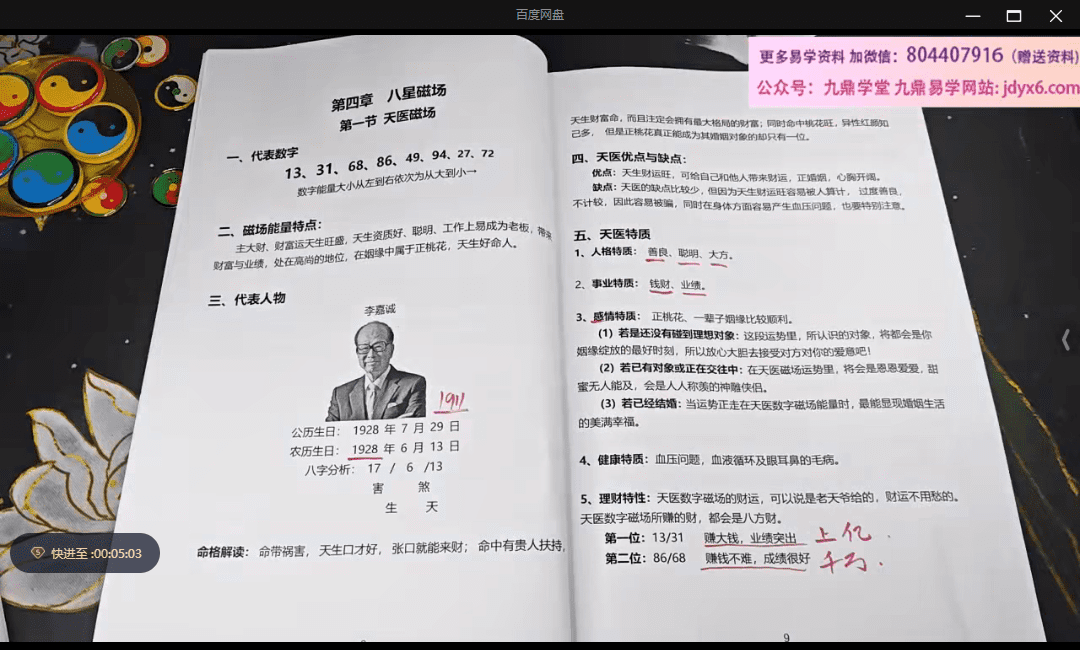 百度网盘
更多易学资料 加微信：804407916（赠送资料）
公众号：九鼎学堂 九鼎易学网站: jdyx6.com
第四章 八星磁场
第一节 天医磁场
一、代表数字
13、31、68、86、49、94、27、72
数字能量大小从左到右依次为从大到小→
二、磁场能量特点：
主大财、财富运天生旺盛，天生资质好、聪明、工作上易成为老板，带来
财富与业绩，处在高尚的地位，在姻缘中属于正桃花，天生好命人。
三、代表人物
李嘉诚
1911
公历生日： 1928 年 7 月 29 日
农历生日： 1928 年 6 月 13 日
八字分析： 17 / 6 /13
害 煞
生 天
命格解读： 命带祸害， 天生口才好， 张口就能来财； 命中有贵人扶持，
快进至 :00:05:03
天生财富命，而且注定会拥有最大格局的财富；同时命中桃花旺，异性红颜知
己多， 但是正桃花真正能成为其婚姻对象的却只有一位。
四、天医优点与缺点：
优点：天生财运旺，可给自己和他人带来财运，正婚姻，心胸开阔。
缺点：天医的缺点比较少，但因为天生财运旺容易被人算计， 过度善良，
不计较，因此容易被骗，同时在身体方面容易产生血压问题，也要特别注意。
五、天医特质
1、人格特质： 善良、聪明、大方。
2、事业特质： 钱财、业绩。
3、感情特质： 正桃花、一辈子姻缘比较顺利。
（1）若是还没有碰到理想对象：这段运势里，所认识的对象，将都会是你
姻缘绽放的最好时刻，所以放心大胆去接受对方对你的爱意吧！
（2）若已有对象或正在交往中：在天医磁场运势里，将会是恩恩爱爱，甜
蜜无人能及，会是人人称羡的神雕侠侣。
（3）若已经结婚：当运势正走在天医数字磁场能量时，最能显现婚姻生活
的美满幸福。
4、健康特质：血压问题，血液循环及眼耳鼻的毛病。
5、理财特性：天医数字磁场的财运，可以说是老天爷给的，财运不用愁的。
天医数字磁场所赚的财，都会是八方财。
第一位：13/31 赚大钱，业绩突出 上亿
第二位：86/68 赚钱不难，成绩很好 千万
9